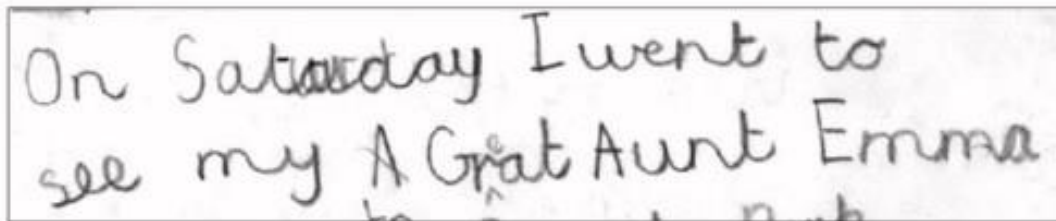 On Saturday I went to
see my A Great Aunt Emma
to